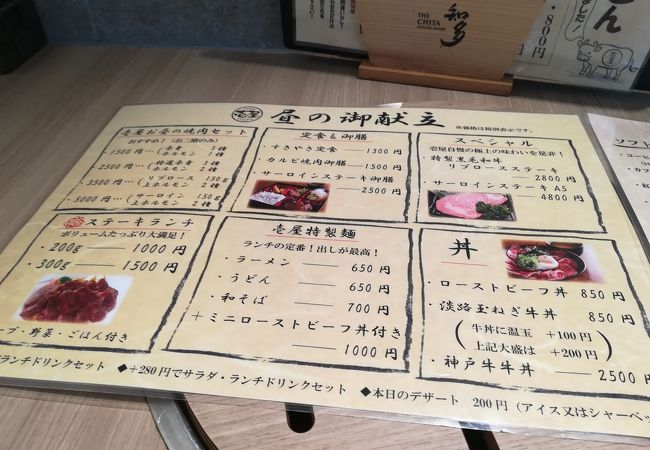 THE CHITA
知多
800円
壱屋
昼の御献立
※価格は税別表示です。
壱屋お昼の焼肉セット
おすすめ！（お二階のみ）
1500円…
2種
ホルモン 1種
2500円…
2種
上ホルモン 2種
3500円…
リブロース 150g
上ホルモン 2種
5000円…
サーロイン 150g
上ホルモン 2種
定食&御膳
すきやき定食 1300円
カルビ焼肉御膳 1500円
サーロインステーキ御膳
2500円
スペシャル
壱屋自慢の極上の味わいを是非！
特製黒毛和牛
リブロースステーキ
2800円
サーロインステーキA5
4800円
ステーキランチ
ボリュームたっぷり大満足！
・200g 1000円
・300g 1500円
プ・野菜・ごはん付き
壱屋特製麺
ランチの定番！出しが最高！
・ラーメン 650円
・うどん 650円
・和そば 700円
＋ミニローストビーフ丼付き
1000円
丼
・ローストビーフ丼 850円
・淡路玉ねぎ牛丼 850円
（牛丼に温玉 +100円
上記大盛は +200円）
・神戸牛牛丼 2500円
ランチドリンクセット ◆+280円でサラダ・ランチドリンクセット ◆本日のデザート 200円（アイス又はシャーベッ
ソフト